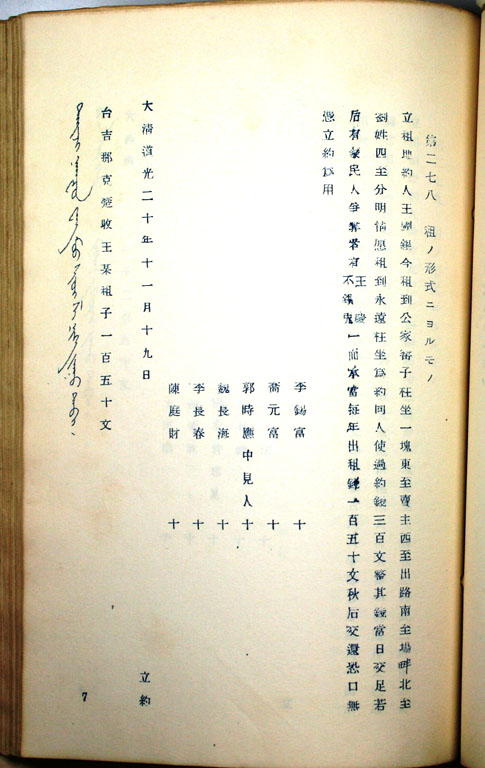 第二七八 租ノ形式ニヨルモノ
立租地約人王 今租到公家 子柱坐一塊東至賣主西至出路南至場畔北至
劉姓四至分明情愿租到永遠柱坐為約同人使過約錢三百文整其錢當日交足若
后有蒙民人爭奪者有王 不 一面承當每年出租錢一百五十文秋后交還恐口無
憑立約為用
李錫富 十
喬元富 十
郭時應中見人 十
魏長海 十
李長春 十
陳庭財 十
大清道光二十年十一月十九日 立約
台吉那克 收王某租子一百五十文
7